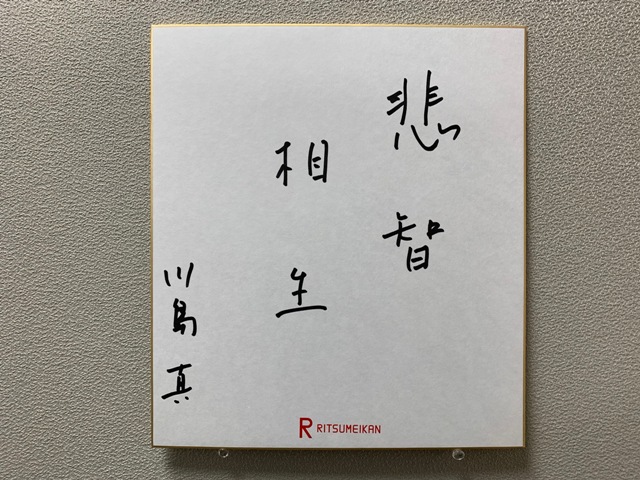 悲智
相生
川島真
R RITSUMEIKAN